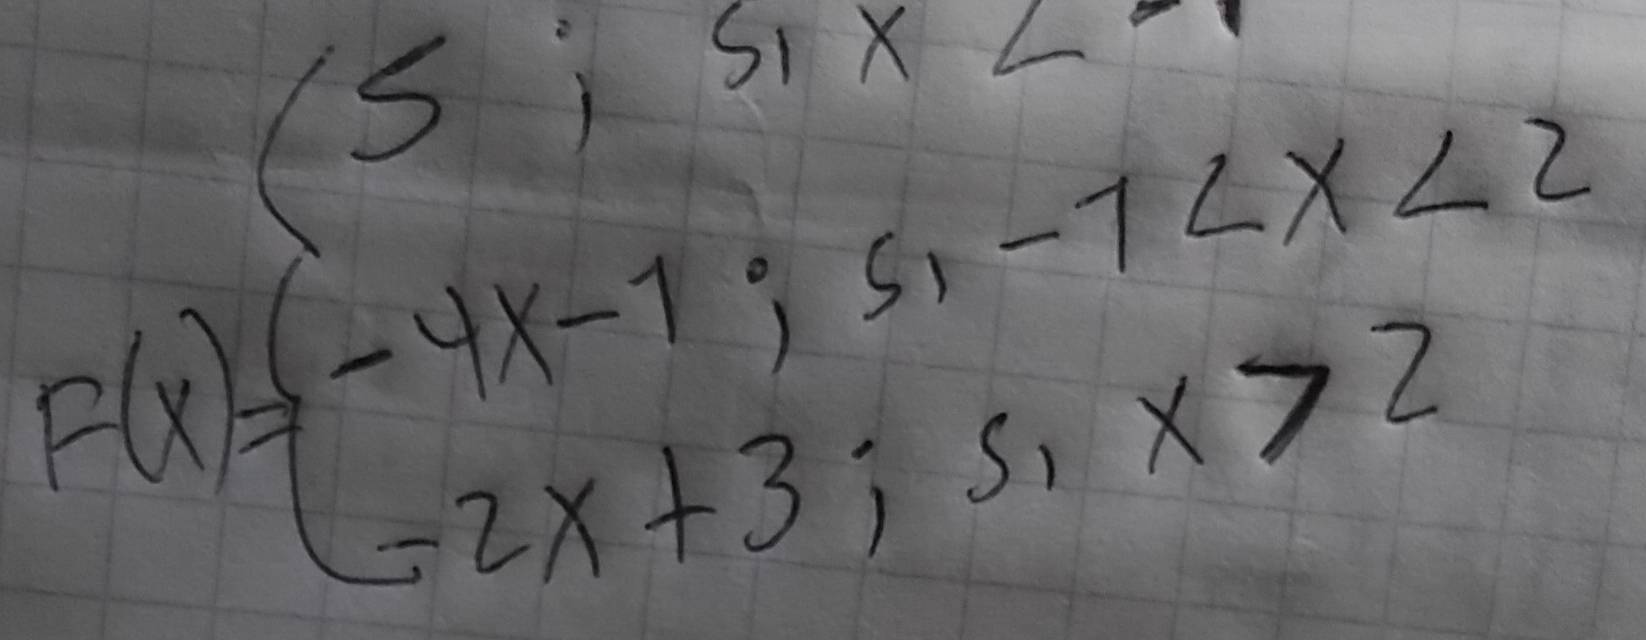 5 ; si x < -1
-4x-1 ; si -1 < x < 2
F(x)=
-2x+3 ; si x > 2